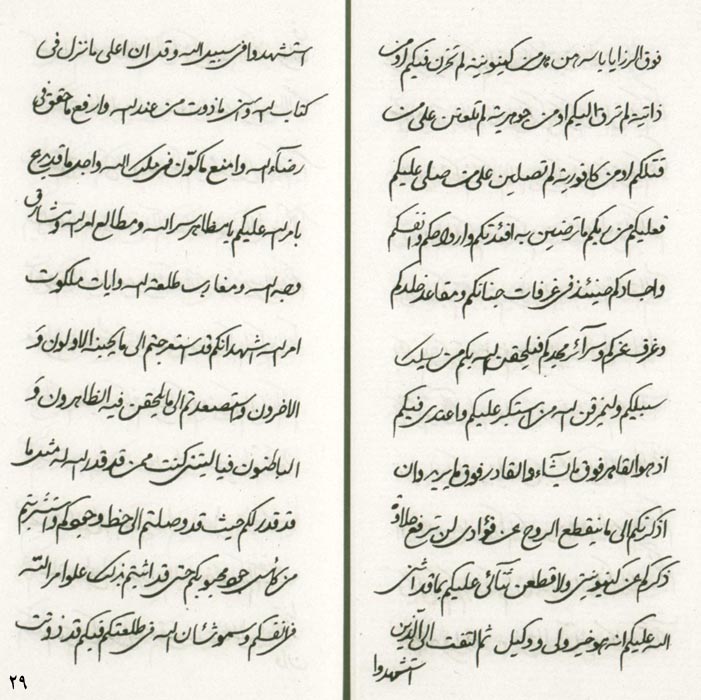 فوق الرزايا يا سر من من كينونية لم تحزن فيكم او من
ذاتية لم ترق اليكم او من جوهرية لم تلعنن على من
قتلكم او من كافورية لم تصلين على من صلى عليكم
فعليكم من ربكم ما ترضين به افئدتكم وارواحكم وانفسكم
واجسادكم حينئذ فى غرفات جنانكم ومقاعد خلدكم
وغرف عزكم وسرائر مجدكم فليلحقن الله بكم من سلك
سبيلكم وليفرقن الله من استكبر عليكم واعتدى فيكم
اذ هو القاهر فوق ما يشاء والقادر فوق ما يريد وان
اذكرنكم الى ما ينقطع الروح عن فؤادى لن ترفع حلاوة
ذكركم عن كينونيتى ولاقطعن ثنائى عليكم بما قد اثنى
الله عليكم انه هو خير ولى ووكيل ثم التفت الى الذين
استشهدوا
استشهدوا فى سبيل الله وقل ان اعلى ما نزل فى
كتاب الله واسنى ما ذوت من عند الله وارفع ما حقق فى
رضاء الله وامنع ما كون فى ملك الله واجل ما قدر
بامر الله عليكم يا مظاهر سر الله ومطالع امر الله ومشارق
وجه الله ومغارب طلعة الله وايات ملكوت
امر الله اشهد انكم قد استعرجتم الى ما لا يحيينه الاولون و
الاخرون واستصعدتم الى ما لا يلحقن فيه الظاهرون و
الباطنون فيا ليتنى كنت ممن قد قدر الله له مثل ما
قد قدر لكم حيث قد وصلتم الى حظ وجودكم واستشربتم
من كأس محبوبكم حتى قد اثبتم بذلك علو امر الله
فى انفسكم وسمو شأن الله فى طلعتكم فيكم قد ذوتت
٢٩